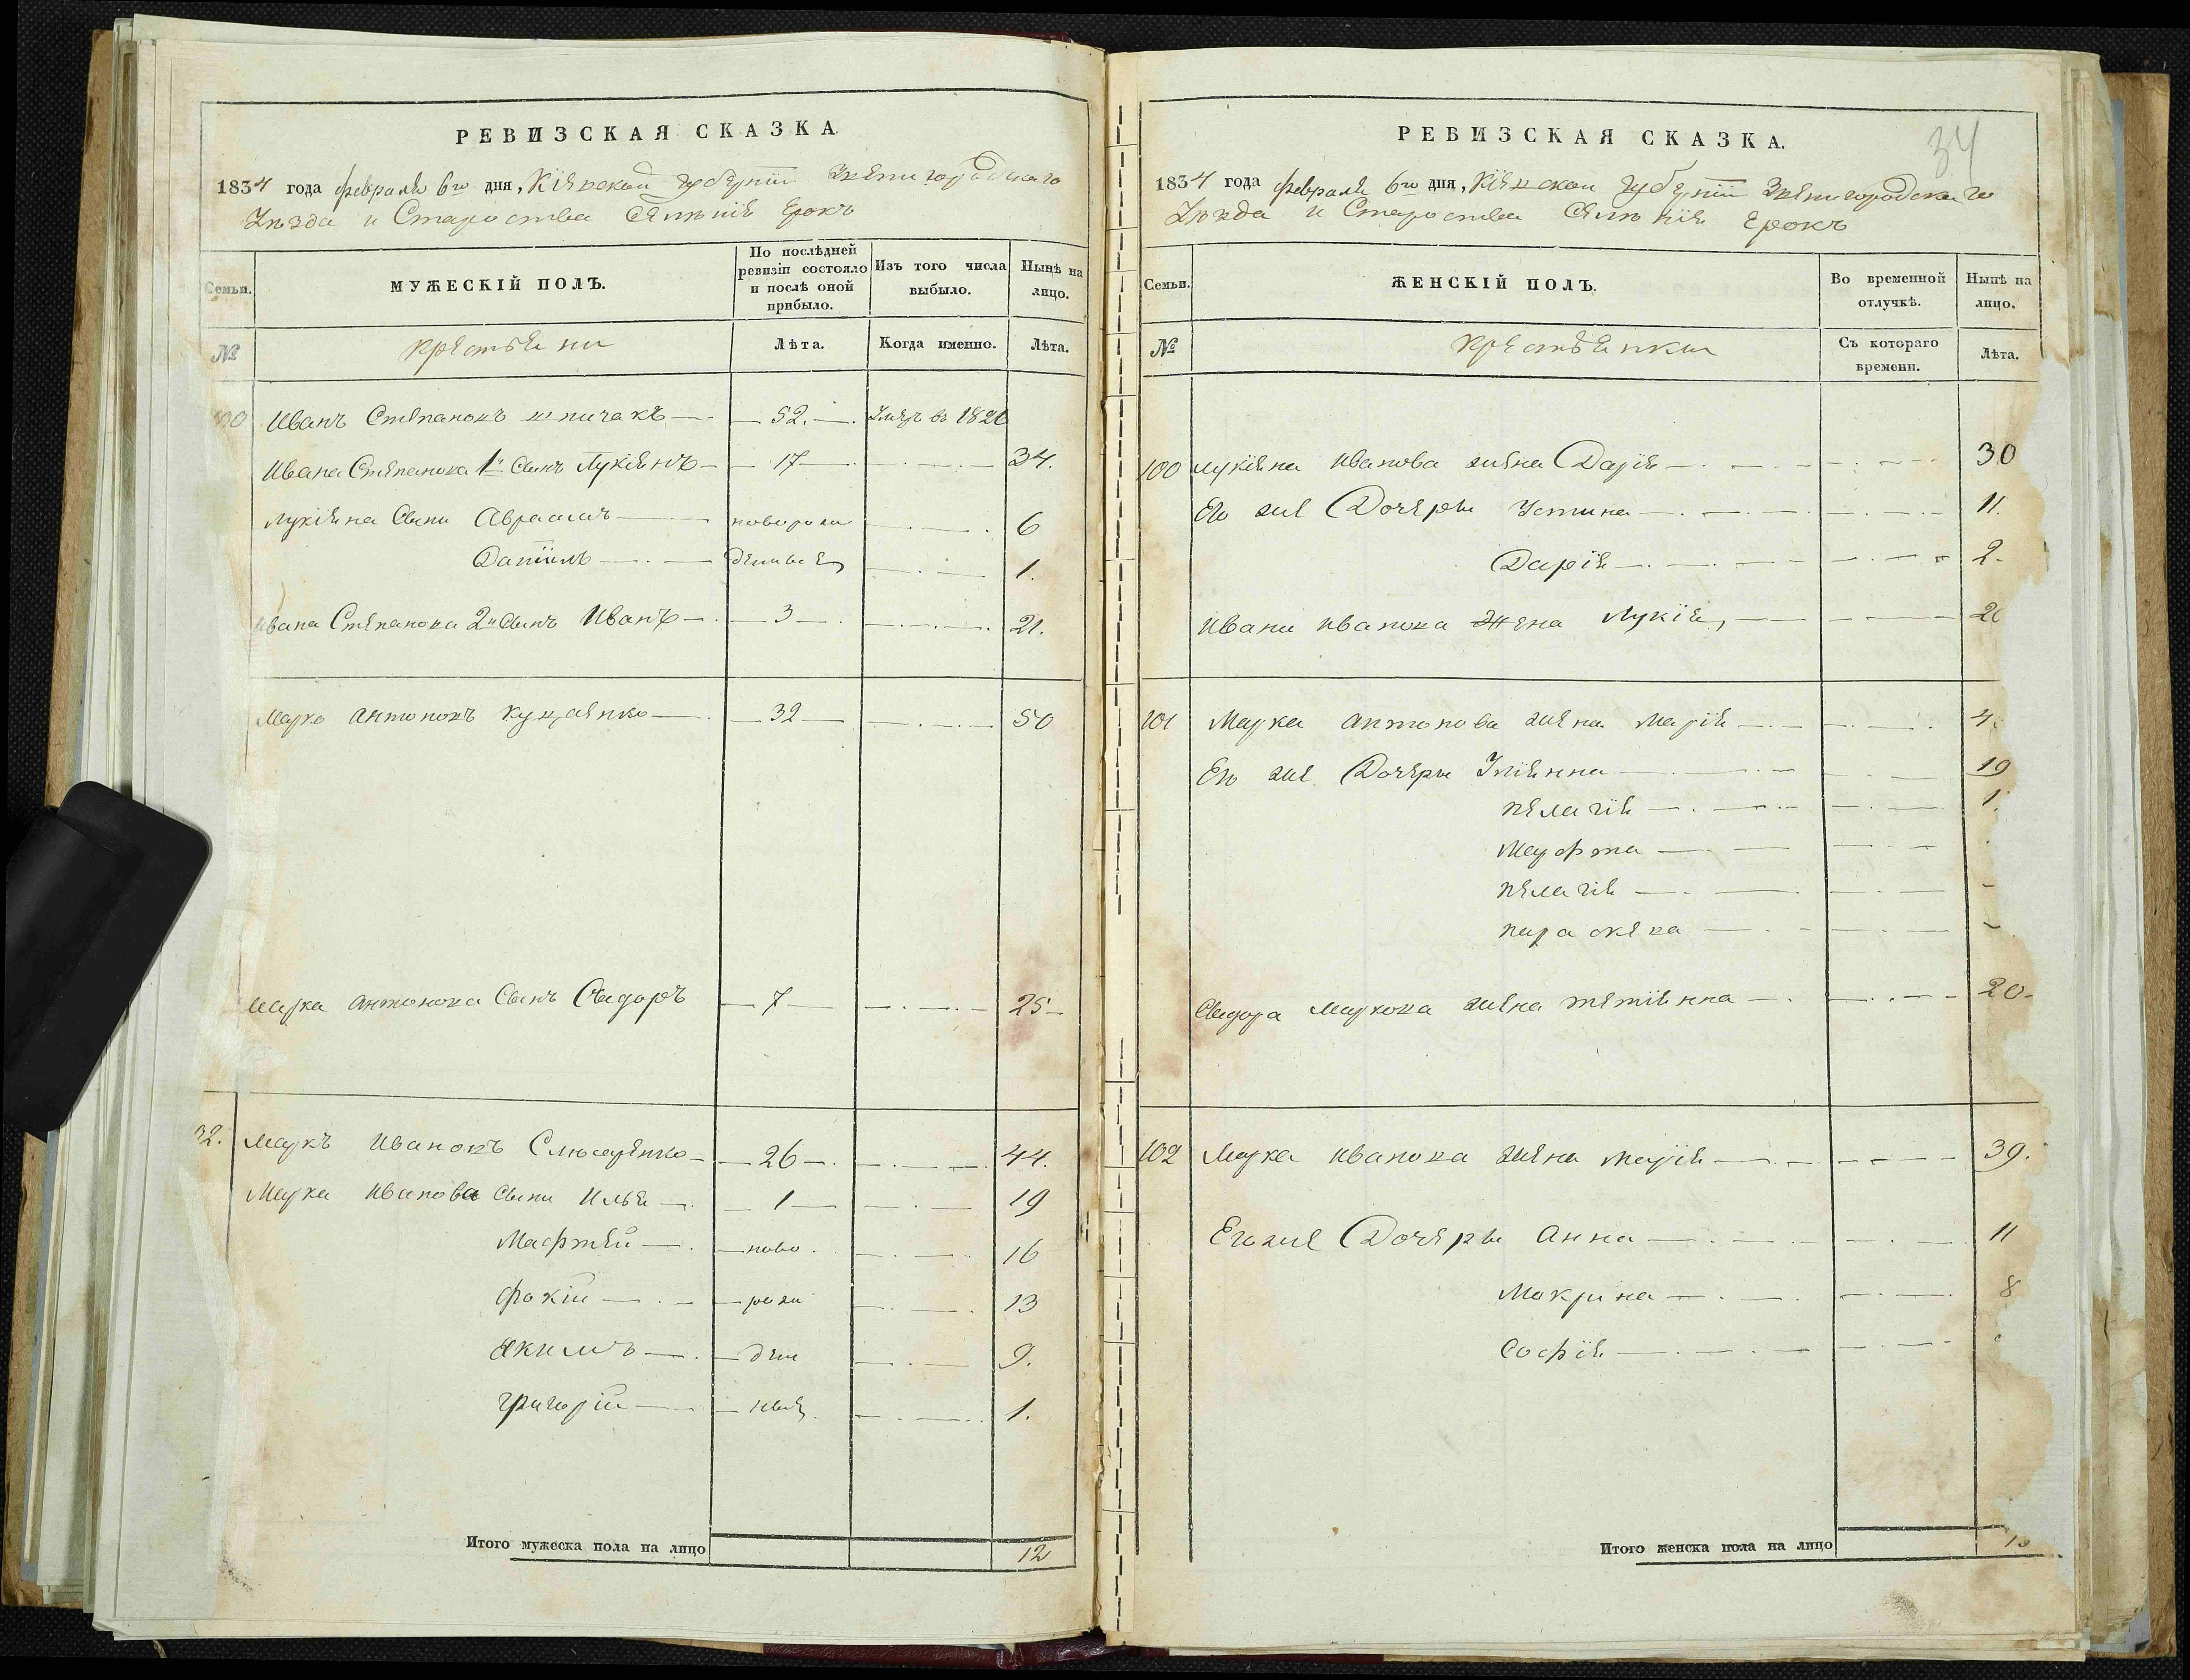 РЕВИЗСКАЯ СКАЗКА.
1834 года февраля 6го дня, Кіевской губерніи Звенигородскаго
Уезда и Староства Селенія Ерокъ
Семьи.
МУЖЕСКІЙ ПОЛЪ.
По послѣдней ревизіи состояло и послѣ оной прибыло.
Изъ того числа выбыло.
Нынѣ на лицо.
№
крестьяни
Лѣта.
Когда именно.
Лѣта.
Иванъ Степановъ шпичакъ 52. Умеръ въ 1826
Ивана Степанова 1й Сынъ Лукіянъ 17 34.
Лукіяна Сыни Авраамъ новорож 6
Даніилъ денные 1.
Ивана Степанова 2й Сынъ Иванъ 3 21.
Марко Антоновъ Куцаенко 32 50
Марка Антонова Сынъ Сидоръ 7 25
Маркъ Ивановъ Слюсаренко 26 44.
Марка Иванова Сыни Илья 1 19
Мафтей ново 16
Фокій рож 13
Якимъ ден 9.
Григорій ные 1.
Итого мужеска пола на лицо 12
РЕВИЗСКАЯ СКАЗКА.
34
1834 года февраля 6го дня, Кіевской губерніи Звенигородскаго
Уезда и Староства Селенія Ерокъ
Семьи.
ЖЕНСКІЙ ПОЛЪ.
Во временной отлучкѣ.
Нынѣ на лицо.
№
крестьянки
Съ котораго времени.
Лѣта.
100 Лукіяна Иванова жена Дарія 30
Его же Дочеры Устина 11.
Дарія 2.
Ивана Иванова Жена Лукія,
101 Марка Антонова жена Марія
Его же Дочеры Уліянна 19
Пелагія
Марфта
Пелагія
Параскева
Сидора Маркова жена Тетіянна 20
102 Марка Иванова жена Марія 39.
Его же Дочеры Анна 11
Макрина 8
Софія
Итого женска пола на лицо